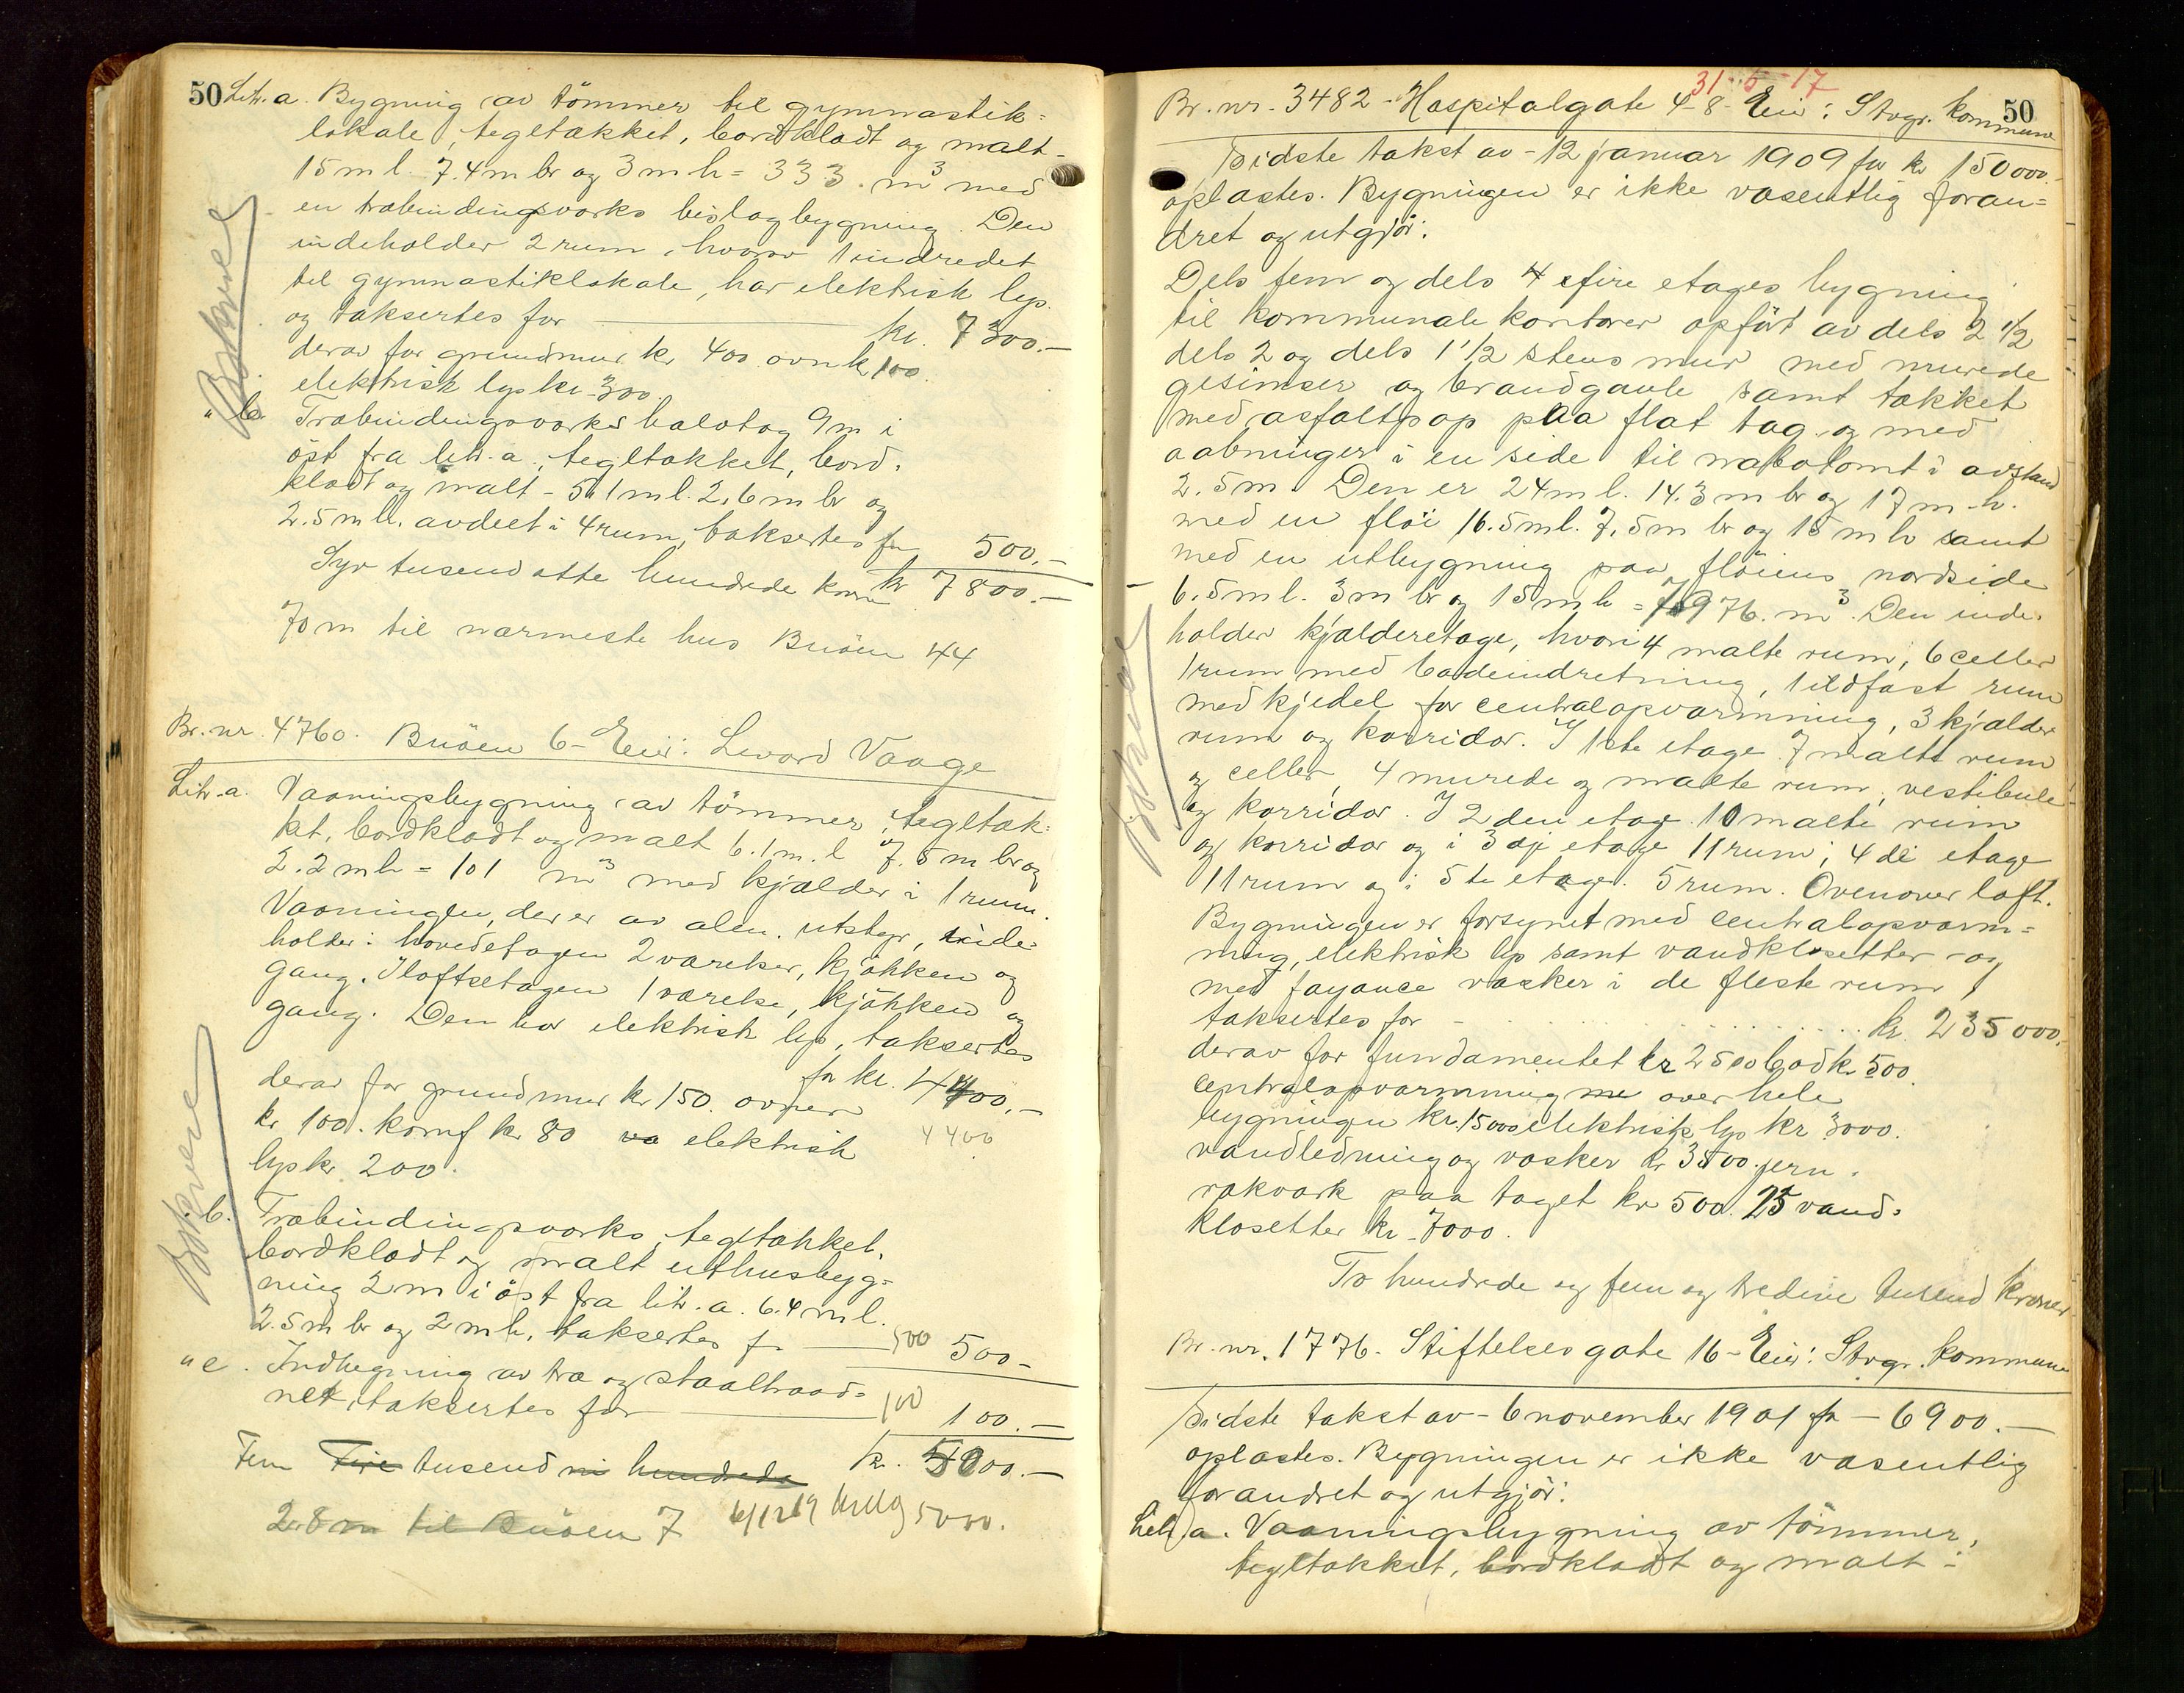 50 Litr. a. Bygning av tömmer til gymnastik=
lokale, tegltækket, bordklædt og malt -
15 m l. 7.4 m br og 3 m h = 333. m³ med
en træbindingsværks bislagbygning. Den
indeholder 2 rum, hvorav 1 indredet
til gymnastiklokale, har elektrisk lys
og taksertes for kr. 7300.—
derav for grundmur kr 400 ovn kr 100.
elektrisk lys kr. 300.
Bokført
" b. Træbindingsværks halvtag 9 m i
öst fra litr. a., tegltækket, bord-
klædt og malt - 5.1 m l. 2,6 m br og
2.5 m h. avdelt i 4 rum, taksertes for 500.—
Syv tusend otte hundrede kroner kr 7800.—
70 m til nærmeste hus Buöen 44
Br. nr. 4760. Buöen 6 - Eier: Sivard Vaage
Litr. a. Vaaningsbygning av tömmer, tegltæk=
ket, bordklædt og malt 6.1 m. l 7.5 m br og
2.2 m h = 101 m³ med kjælder i 1 rum.
Vaaningen, der er av alm. utstyr, inde=
holder i hovedetagen 2 værelser, kjökken og
gang. I loftsetagen 1 værelse, kjökken og
gang. Den har elektrisk lys, taksertes
for kr. 4400.—
derav for grundmur kr 150. ovner
kr 100. komf kr 80 elektrisk 4400
lys kr. 200.
Bokført
" b. Træbindingsværks, tegltækket,
bordklædt og malt uthusbyg=
ning 2 m i öst fra litr. a. 6.4 m l.
2.5 m br og 2 m h, taksertes for 500 500 -
" c. Indhegning av træ og staaltraad=
net, taksertes for 100 100.—
Fem Fire tusend ni hundrede kr. 5000.—
2.8 m til Buöen 7 6/12 19 5000.
31-5-17
Br. nr. 3482 - Hospitalgate 4-8 - Eier: Stvgr. kommune 50
Sidste takst av - 12 januar 1909 for kr 150000.-
oplæstes. Bygningen er ikke væsentlig foran=
dret og utgjör:
Dels fem og dels 4 fire etages bygning
til kommunale kontorer opfört av dels 2 1/2
dels 2 og dels 1 1/2 stens mur med murede
gesimser og brandgavle samt tækket
med asfaltpap paa flat tag og med
aabninger i en side til nabotomt i avstand
2.5 m. Den er 24 m l. 14.3 m br og 17 m h.
med en flöi 16.5 m l. 7.5 m br og 15 m h samt
med en utbygning paa flöiens nordside
6.5 m l. 3 m br og 15 m h = 7976. m³. Den inde-
holder kjælderetage, hvori 4 malte rum, 6 celler
1 rum med badeindretning, 1 ildfast rum
med kjedel for centralopvarmning, 3 kjælder
rum og korridor. I 1ste etage 7 malte rum
og celler, 4 murede og malte rum, vestibule
og korridor. I 2den etage 10 malte rum
og korridor og i 3dje etage 11 rum, 4de etage
11 rum og i 5te etage. 5 rum. Ovenover loft.
Bokført
Bygningen er forsynet med centralopvarm=
ning, elektrisk lys samt vandklosetter - og
med fayance vasker i de fleste rum,
taksertes for - . . . . . . . . . . kr. 235000.
derav for fundamentet kr 2500 bad kr 500.
centralopvarmning over hele
bygningen kr. 15000 elektrisk lys kr 3000.
vandledning og vasker kr 3500. jern-
rækværk paa taget kr 500. 25 vand-
klosetter kr. 7000.
To hundrede og fem og tredive tusend kroner.
Br. nr. 1776 - Stiftelsesgate 16 - Eier: Stvgr. kommune
Sidste takst av - 6 november 1901 for - 6900.—
oplæstes. Bygningen er ikke væsentlig
forandret og utgjör:
Litr. a. Vaaningsbygning av tömmer,
tegltækket, bordklædt og malt -